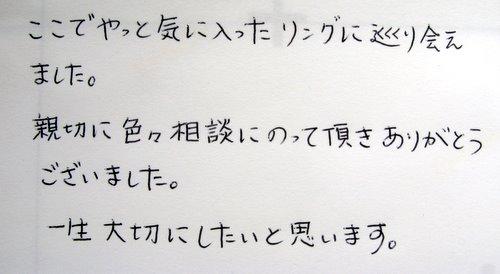 ここでやっと気に入ったリングに巡り会え
ました。
親切に色々相談にのって頂きありがとう
ございました。
一生大切にしたいと思います。